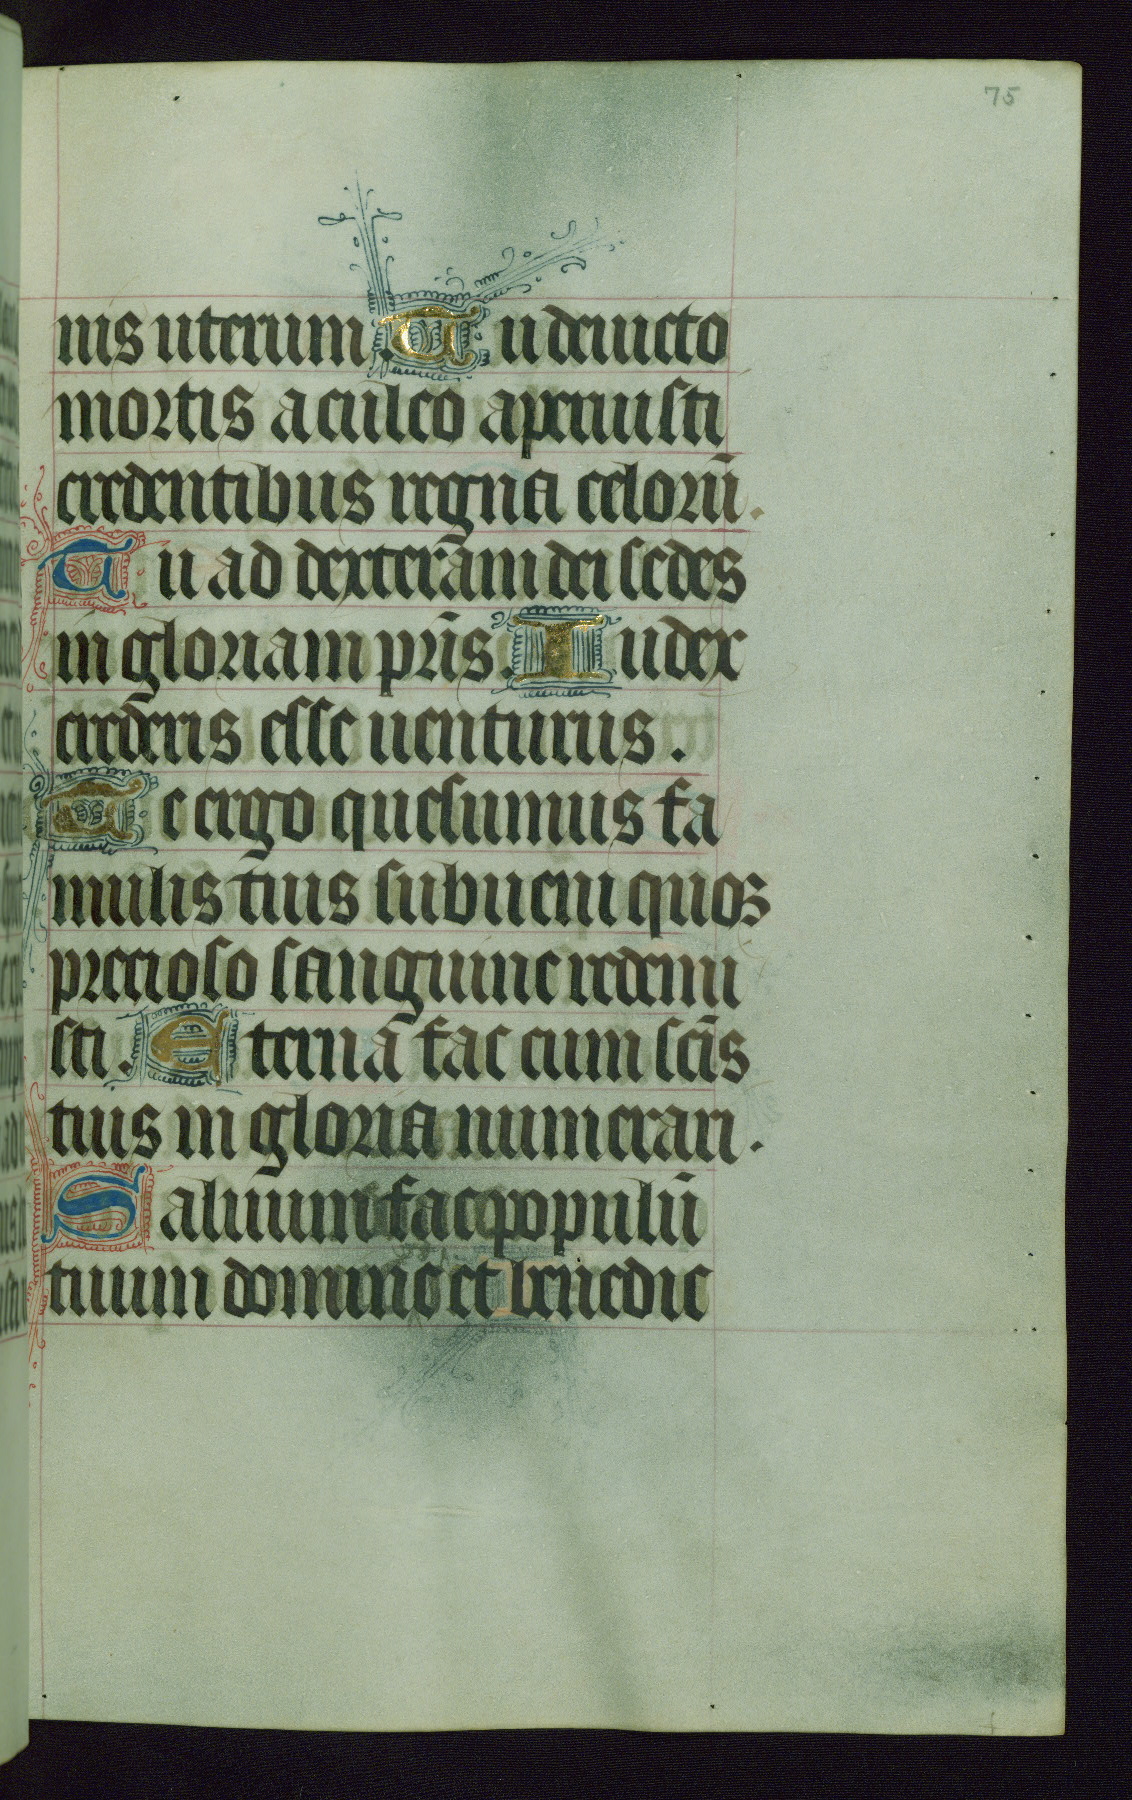 75
nis uterum. Tu deuicto
mortis aculeo aperuisti
credentibus regna celorū.
Tu ad dexteram dei sedes
in gloriam pr̄is. Iudex
crederis esse uenturus.
Te ergo quesumus fa
mulis tuis subueni quos
precioso sanguine redemi
sti. Eternā fac cum sc̄is
tuis in gloria numerari.
Saluum fac populū
tuum domine et benedic